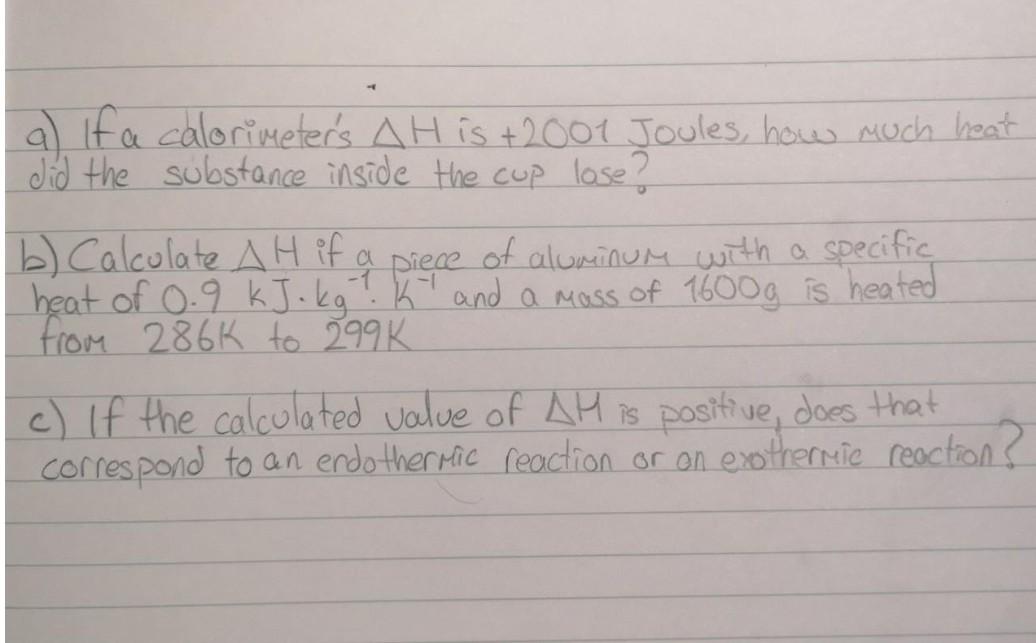 a) If a calorimeter's ΔH is +2001 Joules, how much heat
did the substance inside the cup lose?
b) Calculate ΔH if a piece of aluminum with a specific
heat of 0.9 kJ·kg⁻¹·K⁻¹ and a mass of 1600g is heated
from 286K to 299K
c) If the calculated value of ΔH is positive, does that
correspond to an endothermic reaction or an exothermic reaction?